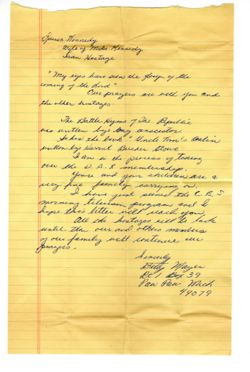 Louisa Kennedy
Wife of Mike Kennedy
Iran Hostage
"My eyes have seen the glory of the
coming of the Lord"
Our prayers are with you and
the other hostages.
The Battle Hymn of the Republic
was written by my ancestor
Is how the book "Uncle Tom's Cabin
written by Harriet Beecher Stowe.
I am in the process of taking
over the D.A.R. membership.
You and your children are a
very fine family, carrying on.
I have just seen the C.B.S
morning television program and
hope this letter will reach you.
All the hostages will be back
until then our and other members
of our family will continue our
prayers.
Sincerely
Betty Mayer
Rt 1 Box 39
Paw Paw Mich
49079